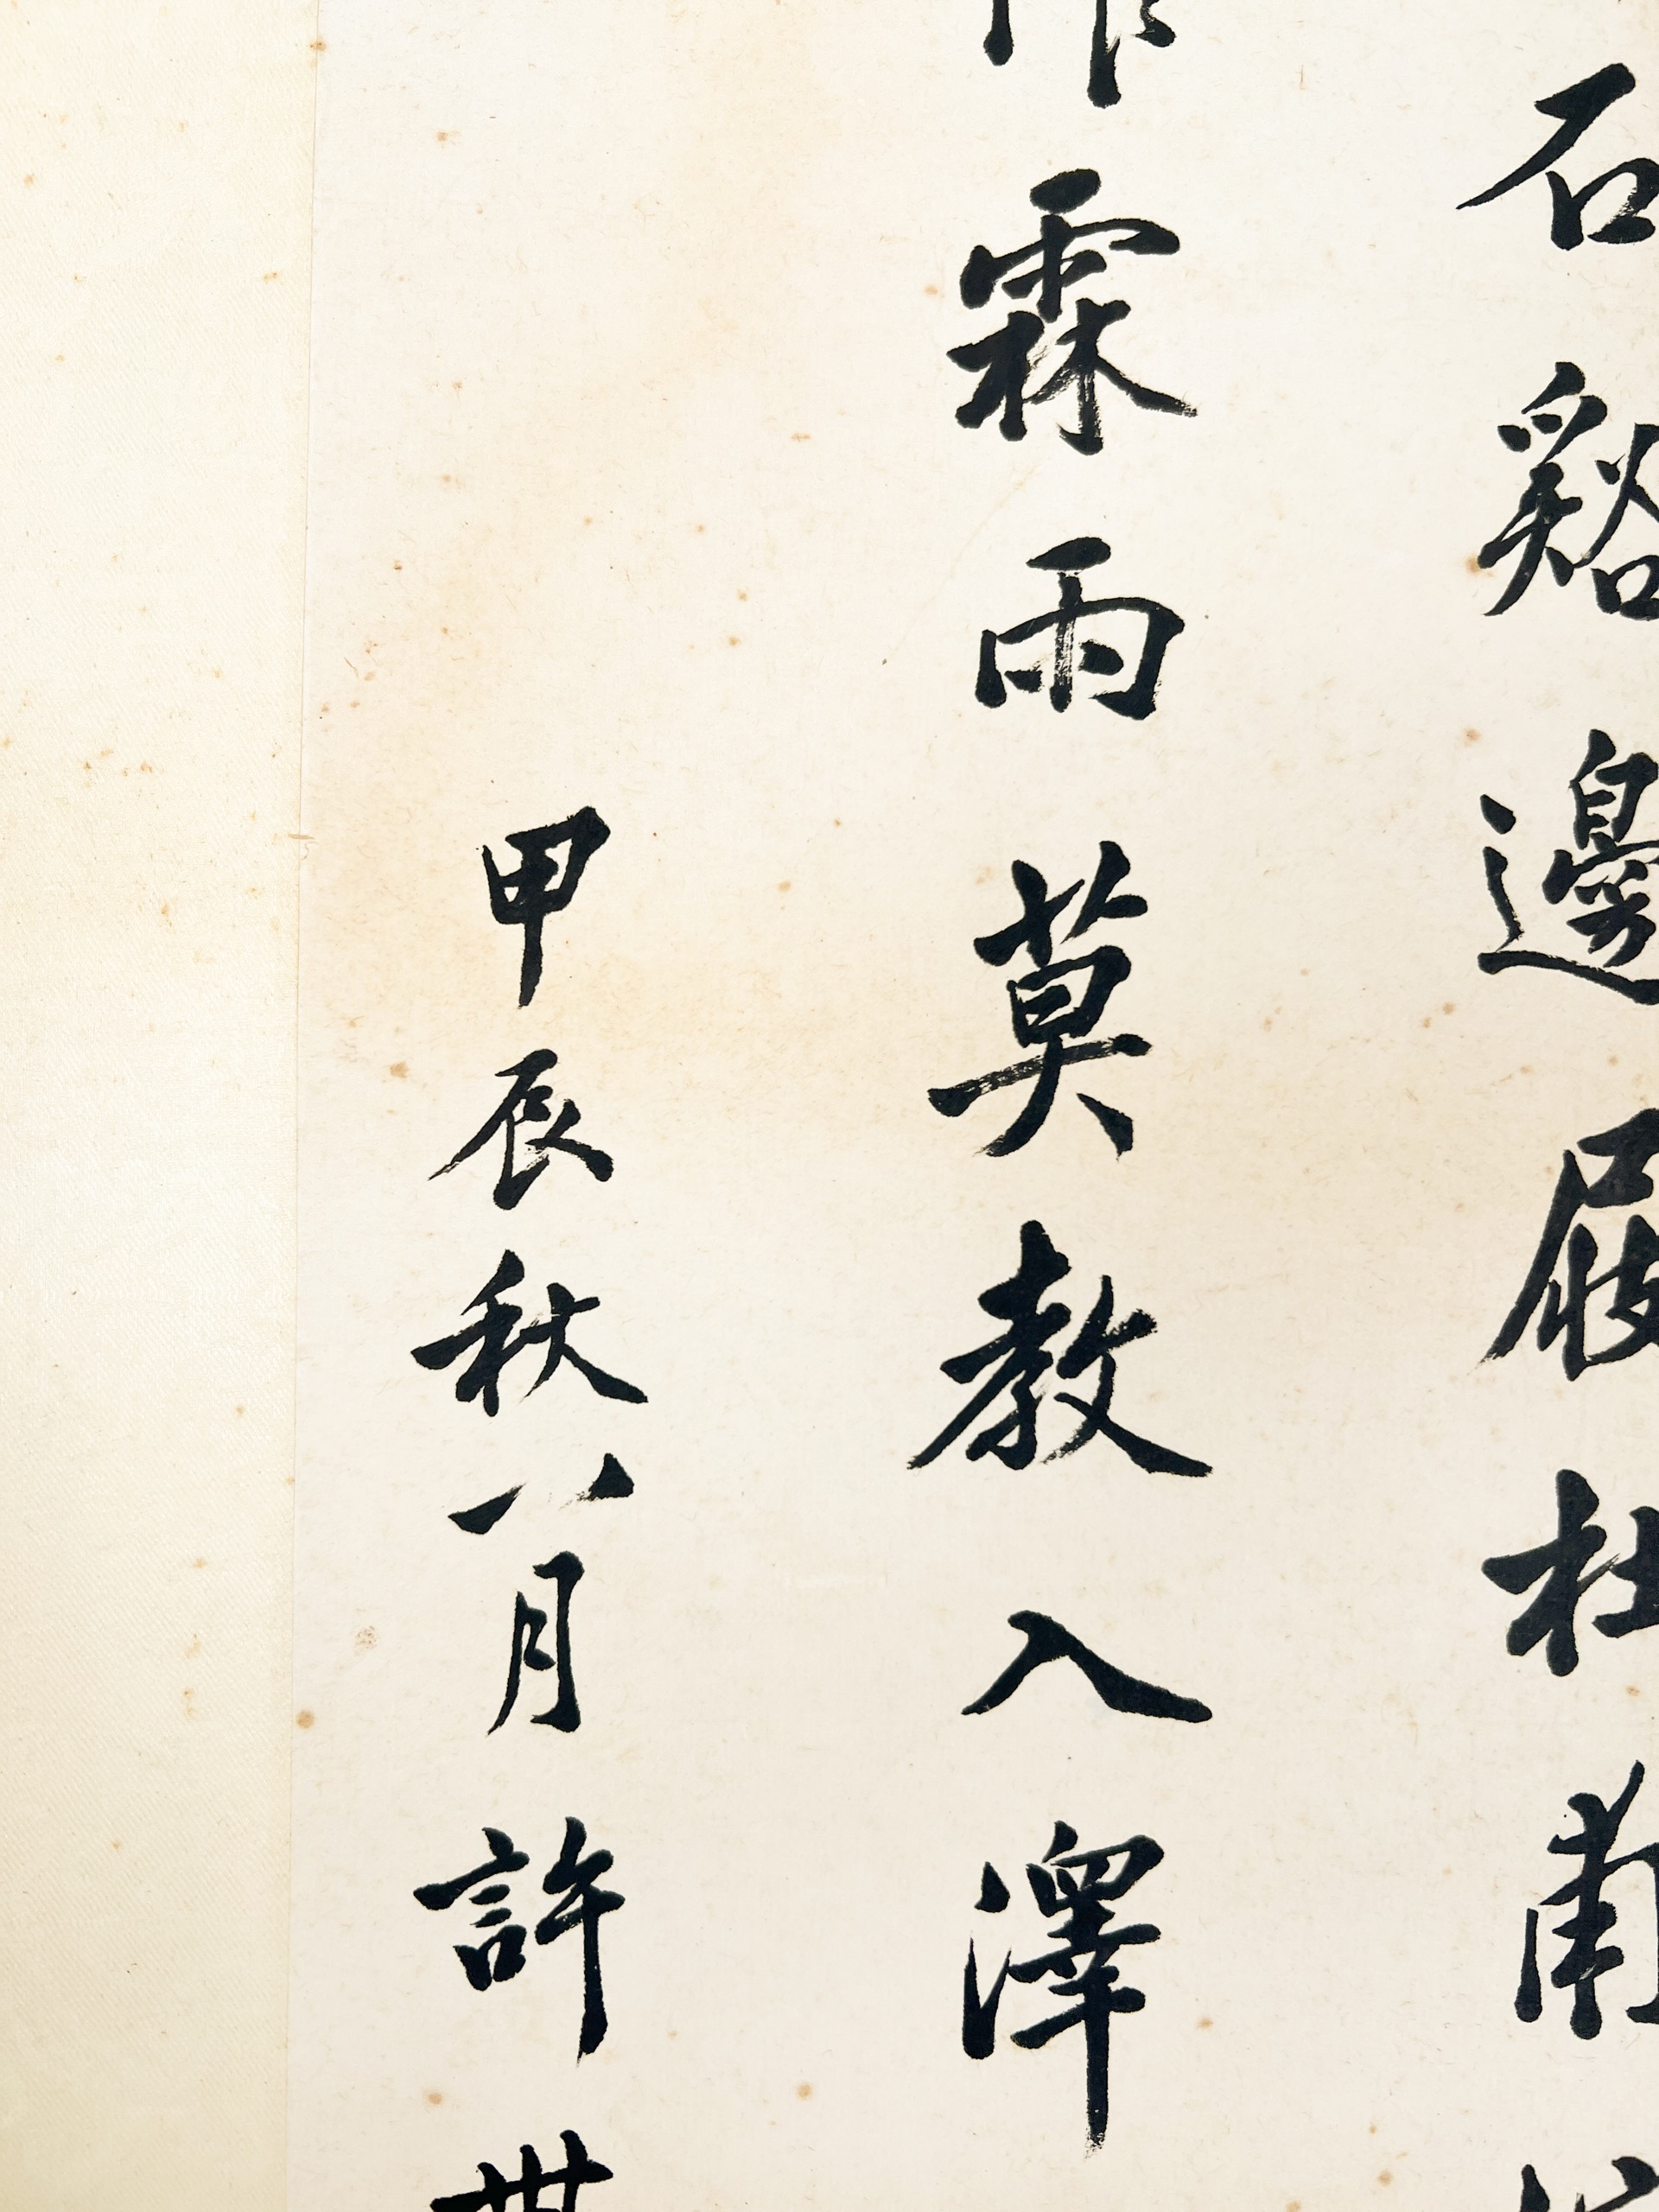 石谿邊屐杜甫
作霖雨莫教入澤
甲辰秋八月許世